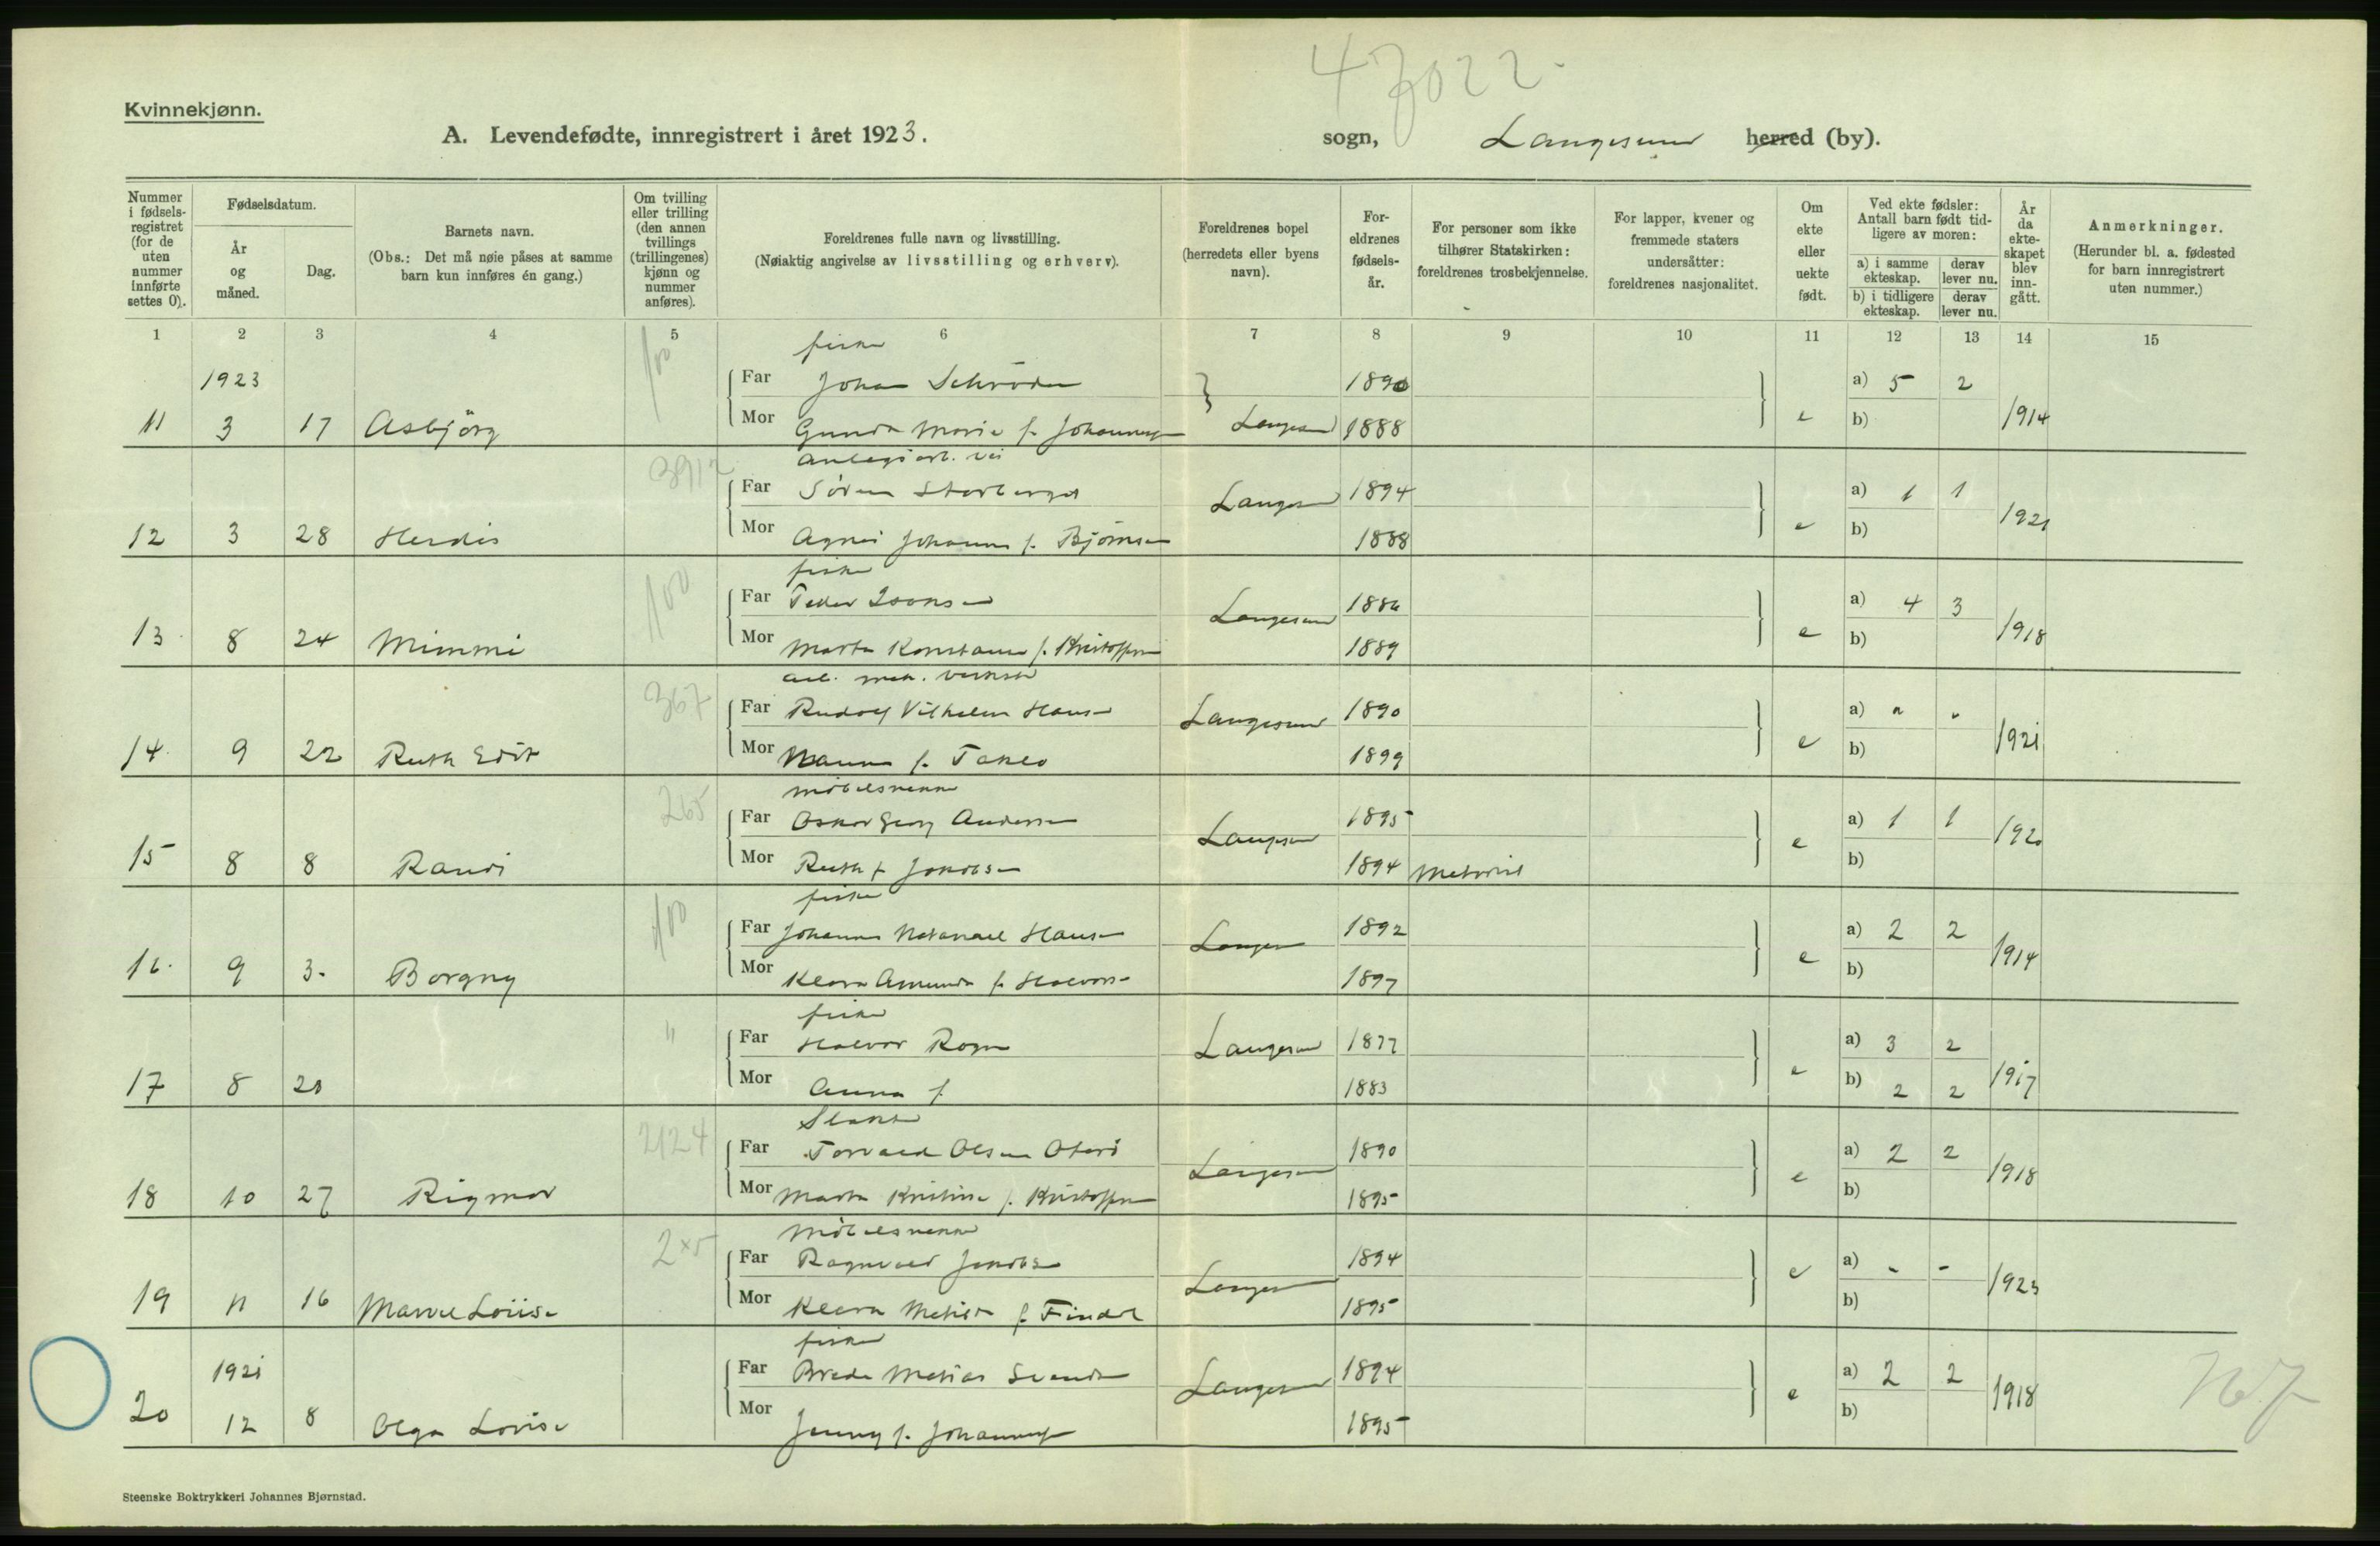 47022.
Kvinnekjønn.
A. Levendefødte, innregistrert i året 1923.
sogn, Langesund herred (by).
Nummer i fødsels-registret (for de uten nummer innførte settes 0).
Fødselsdatum.
År og måned.
Dag.
Barnets navn.
(Obs.: Det må nøie påses at samme barn kun innføres én gang.)
Om tvilling eller trilling (den annen tvillings (trillingenes) kjønn og nummer anføres).
Foreldrenes fulle navn og livsstilling.
(Nøiaktig angivelse av livsstilling og erhverv).
Foreldrenes bopel (herredets eller byens navn).
For-eldrenes fødsels-år.
For personer som ikke tilhører Statskirken: foreldrenes trosbekjennelse.
For lapper, kvener og fremmede staters undersåtter: foreldrenes nasjonalitet.
Om ekte eller uekte født.
Ved ekte fødsler: Antall barn født tid-ligere av moren:
a) i samme ekteskap. derav lever nu.
b) i tidligere ekteskap. derav lever nu.
År da ekte-skapet blev inn-gått.
Anmerkninger.
(Herunder bl. a. fødested for barn innregistrert uten nummer.)
1 2 3 4 5 6 7 8 9 10 11 12 13 14 15
100 fisker
1923 Far Johan Schrøder 1890 a) 5 2
11 3 17 Asbjörg Mor Gunda Marie f. Johannesen Langesund 1888 e b) 1914
3912 Anlegsarb. vei
Far Sören Storberget Langesund 1894 a) 1 1
12 3 28 Herdis Mor Agnes Johanne f. Björnsen 1888 e b) 1921
100 fisker
Far Peder Isaksen Langesund 1886 a) 4 3
13 8 24 Mimmi Mor Marta Konstanse f. Kristoffersen 1889 e b) 1918
367 arb. mek. verksted
Far Rudolf Vilhelm Hansen Langesund 1890 a) " "
14 9 22 Ruth Edit Mor f. 1899 e b) 1921
265 möbelsnekker
Far Oskar Georg Andersen Langesund 1895 a) 1 1
15 8 8 Randi Mor Ruth f. Jakobsen 1894 Metodist e b) 1920
100 fisker
Far Johannes Natanael Hansen Langesund 1892 a) 2 2
16. 9 3. Borgny Mor Klara Amunda f. Halvorsen 1897 e b) 1914
" fisker
Far Halvor Langesund 1877 a) 3 2
17 8 20 Mor Anna f. 1883 e b) 2 2 1917
2124 Slakter
Far Torvald Olsen Langesund 1890 a) 2 2
18 10 27 Rigmor Mor Marta Kristine f. Kristoffersen 1895 e b) 1918
Möbelsnekker
Far Ragnvald Jakobsen Langesund 1894 a) - -
19 11 16 Lovise Mor Klara f. 1895 e b) 1923
fisker
1921 Far Brede Matias Langesund 1894 a) 2 2
20 12 8 Olga Lovise Mor Jenny f. Johannesen 1895 e b) 1918
Steenske Boktrykkeri Johannes Bjørnstad.